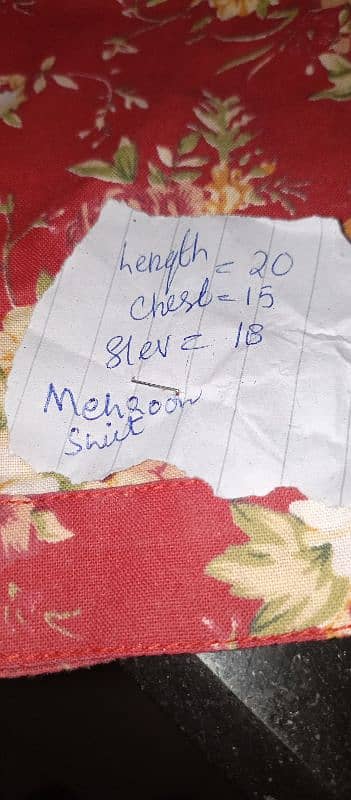 Length = 20
Chest = 15
Slev = 18
Mehroon
Shirt